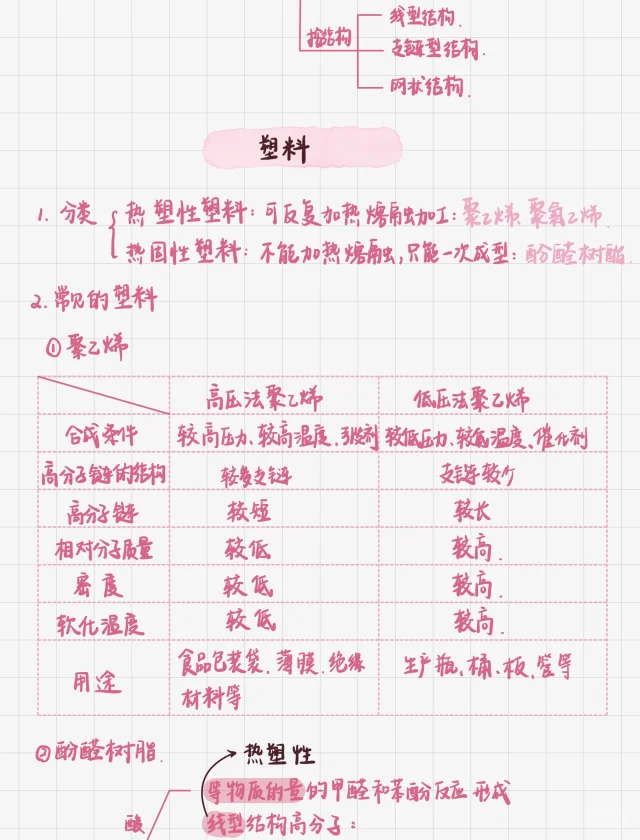 线型结构.
按结构
支链型结构.
网状结构.
塑料
1. 分类 { 热塑性塑料: 可反复加热熔融加工: 聚乙烯、聚氯乙烯.
热固性塑料: 不能加热熔融, 只能一次成型: 酚醛树脂.
2. 常见的塑料
① 聚乙烯
高压法聚乙烯 低压法聚乙烯
合成条件 较高压力、较高温度、引发剂 较低压力、较低温度、催化剂
高分子链的结构 较多支链 支链较少
高分子链 较短 较长
相对分子质量 较低 较高.
密度 较低 较高.
软化温度 较低 较高.
用途 食品包装袋、薄膜、绝缘 生产瓶、桶、板、管等
材料等
② 酚醛树脂.
热塑性
等物质的量的甲醛和苯酚反应形成
酸 线型结构高分子: